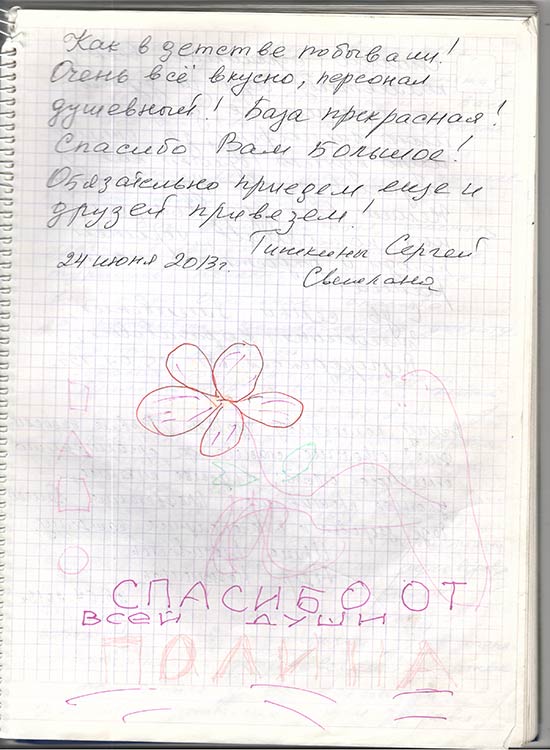 Как в детстве побывали!
Очень всё вкусно, персонал
душевный! База прекрасная!
Спасибо Вам Большое!
Обязательно приедем еще и
друзей привезем!
Тишкины Сергей
Светлана
24 июня 2013г.
СПАСИБО ОТ
ВСЕЙ ДУШИ
ПОЛИНА